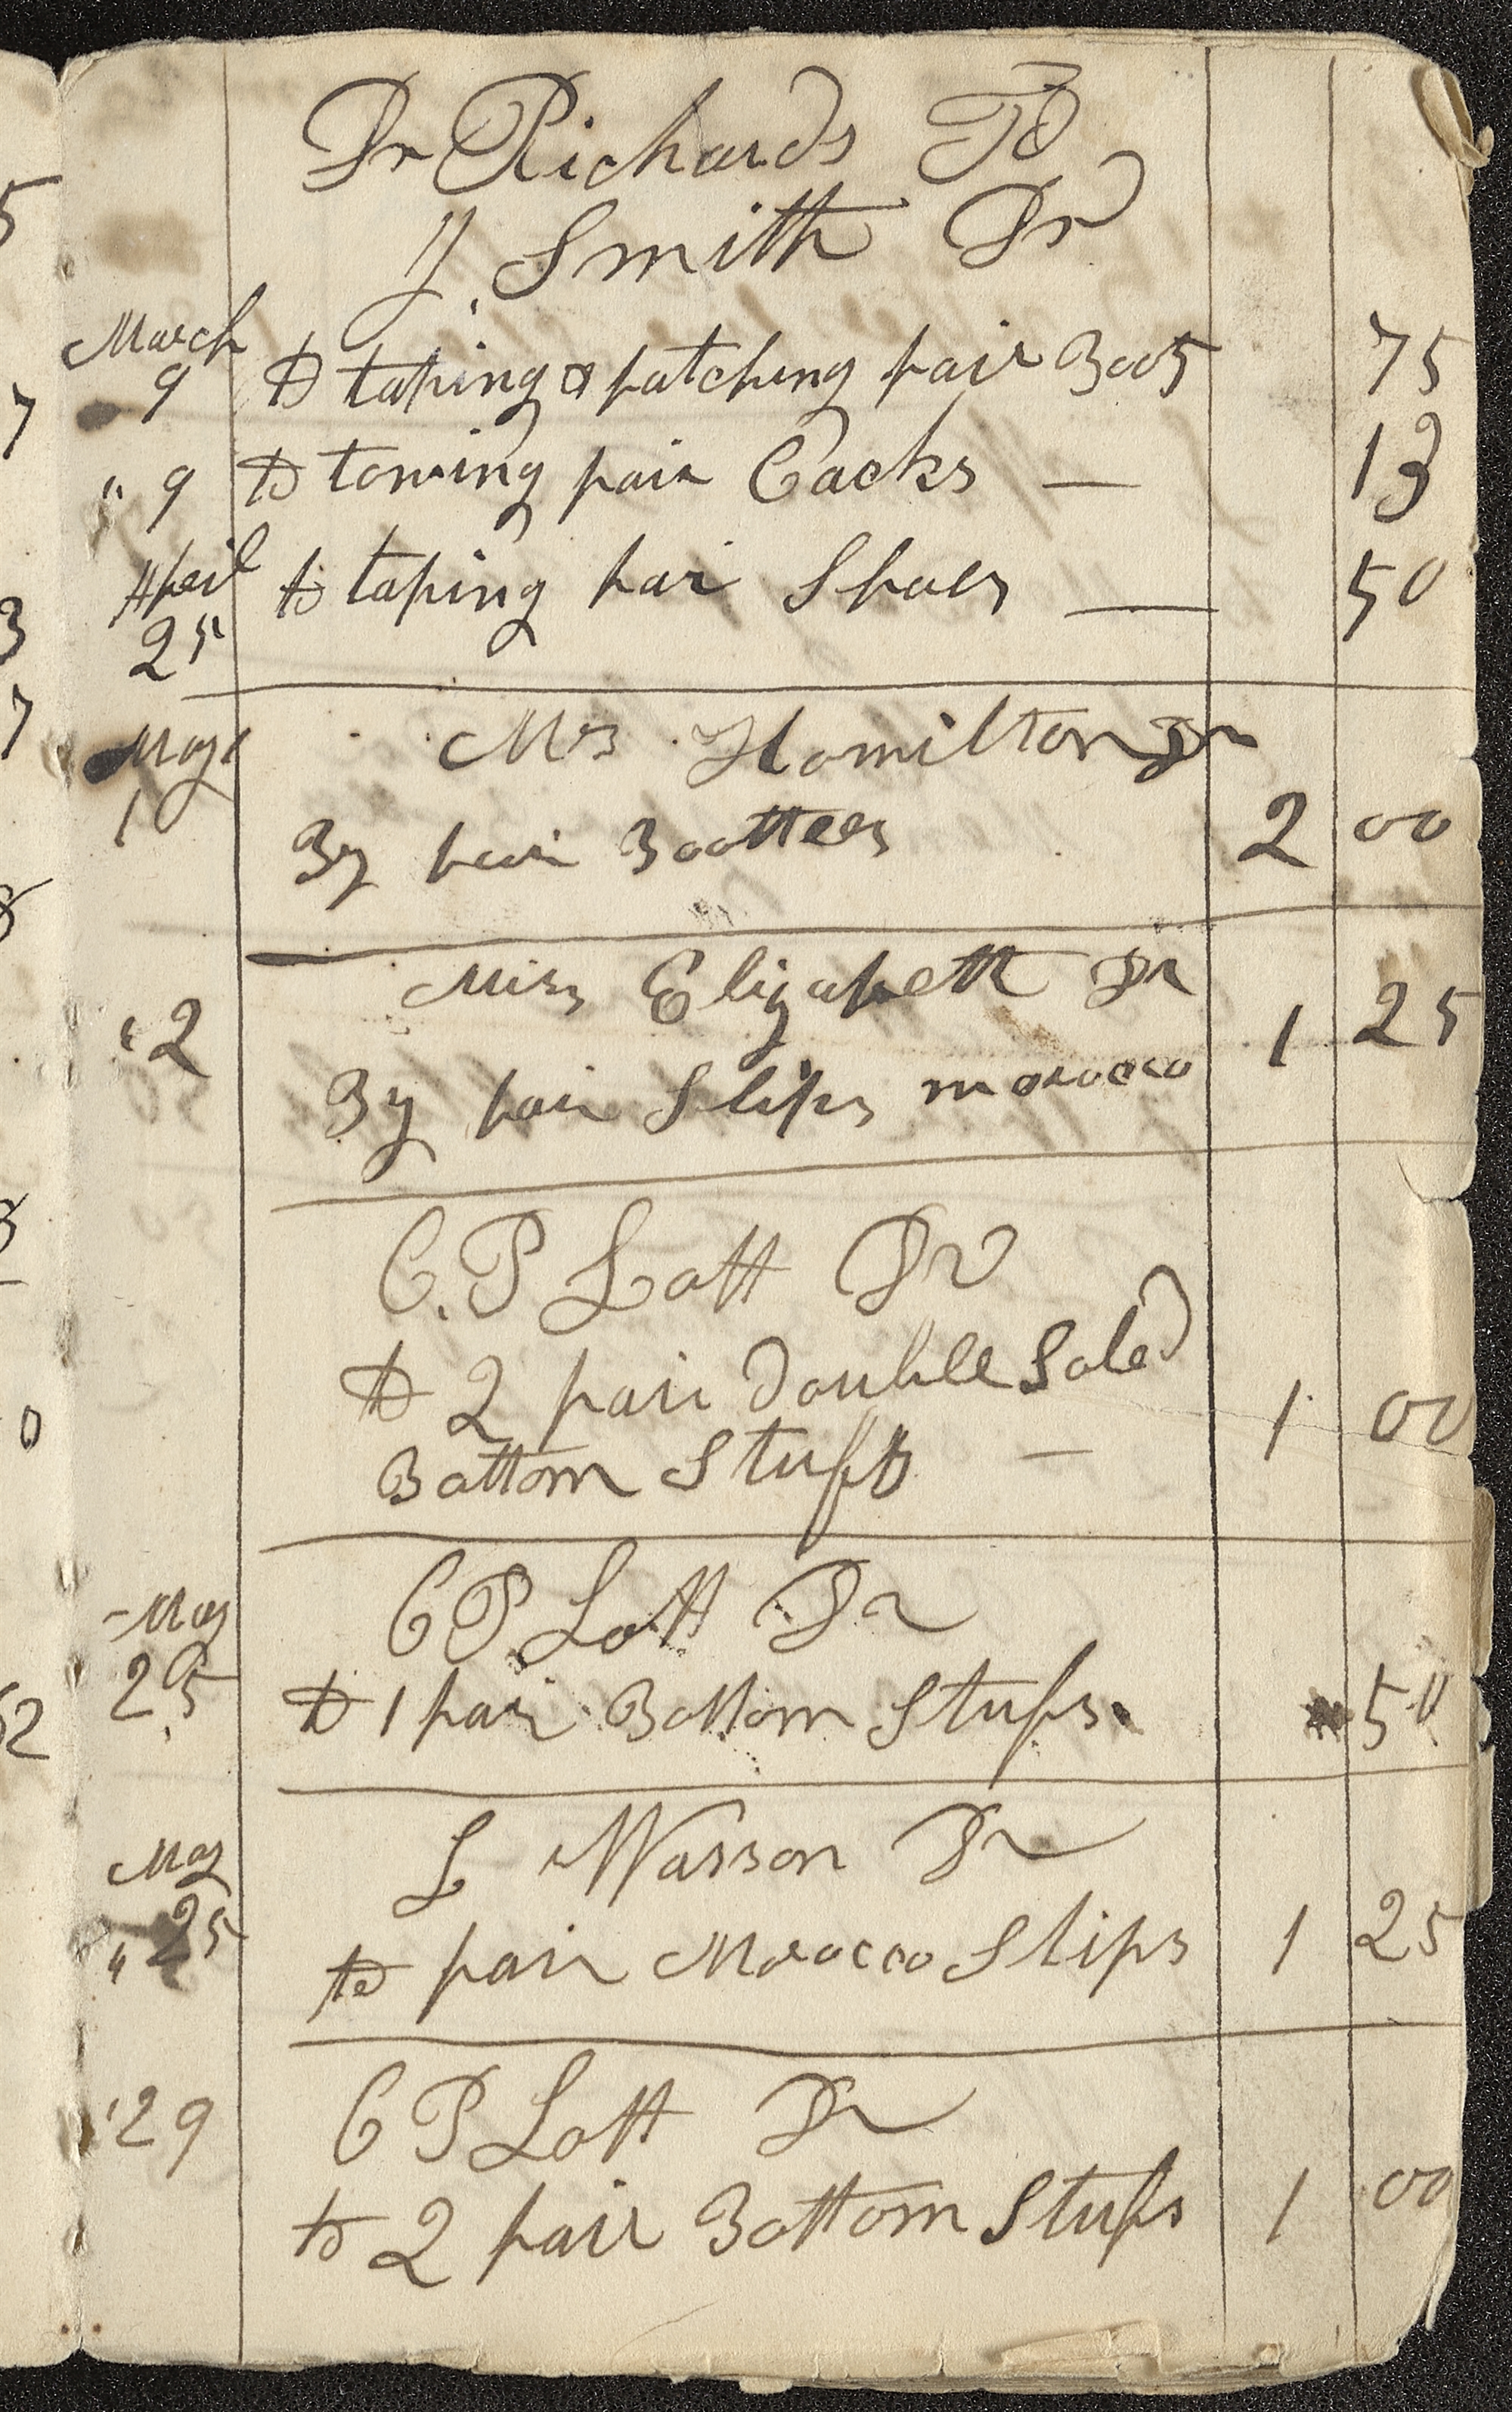 5
7
3
7
8
3
0
62
Dr Richards To
J. Smith Dr
March
9 to taping & patching pair Boots 75
" 9 to towing pair Cacks — 13
April
25 to taping pair Shoes — 50
May
1 Mrs Hamilton Dr
By pair Boottees 2 00
Miss Elizabeth Dr
" 2 1 25
By pair Slips morocco
C. P Lott Dr
to 2 pair double Soled
Bottom Stuffs — 1 00
May C P. Lott Dr
25 to 1 pair Bottom Stufs 50
May L Wasson Dr
" 25 to pair Morocco Slips 1 25
" 29 C P Lott Dr
to 2 pair Bottom Stufs 1 00